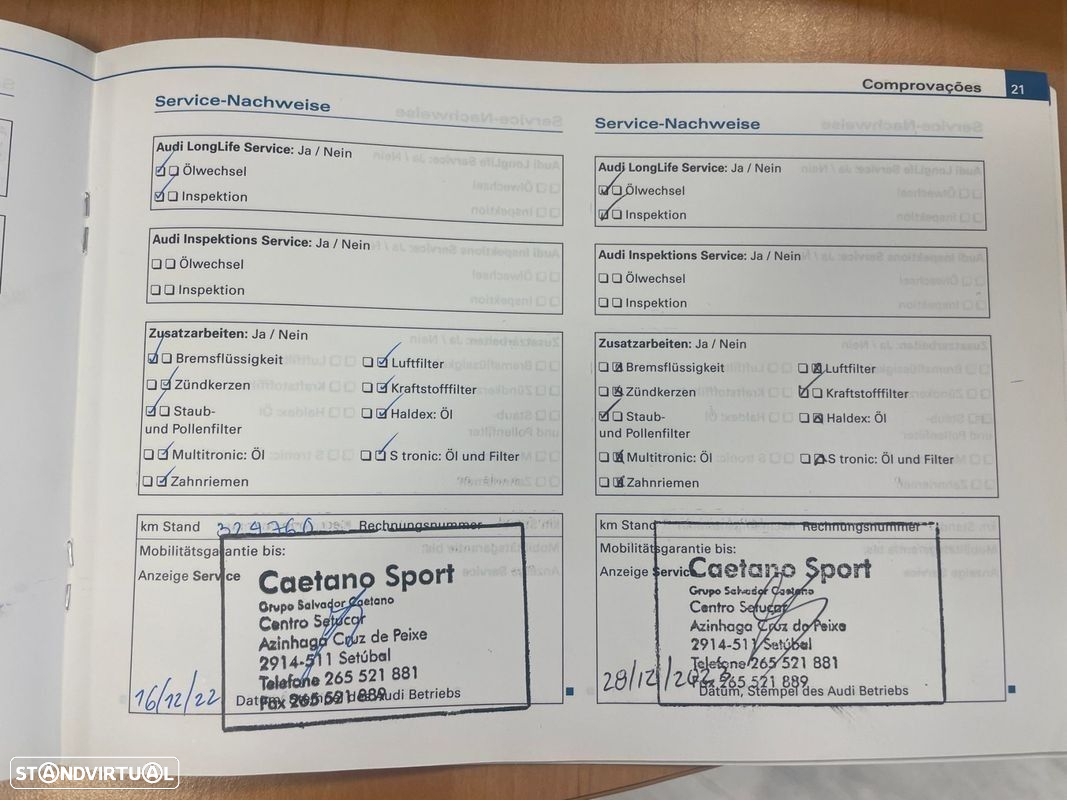 Comprovações 21
Service-Nachweise
Audi LongLife Service: Ja / Nein
Ölwechsel
Inspektion
Audi Inspektions Service: Ja / Nein
Ölwechsel
Inspektion
Zusatzarbeiten: Ja / Nein
Bremsflüssigkeit
Luftfilter
Zündkerzen
Kraftstofffilter
Staub-
und Pollenfilter
Haldex: Öl
Multitronic: Öl
S tronic: Öl und Filter
Zahnriemen
km Stand 324760 Rechnungsnummer
Mobilitätsgarantie bis:
Anzeige Service
Caetano Sport
Grupo Salvador Caetano
Centro Setucar
Azinhaga Cruz de Peixe
2914-511 Setúbal
Telefone 265 521 881
Fax 265 521 889
16/12/22
Datum, Stempel des Audi Betriebs
Service-Nachweise
Audi LongLife Service: Ja / Nein
Ölwechsel
Inspektion
Audi Inspektions Service: Ja / Nein
Ölwechsel
Inspektion
Zusatzarbeiten: Ja / Nein
Bremsflüssigkeit
Luftfilter
Zündkerzen
Kraftstofffilter
Staub-
und Pollenfilter
Haldex: Öl
Multitronic: Öl
S tronic: Öl und Filter
Zahnriemen
km Stand Rechnungsnummer
Mobilitätsgarantie bis:
Anzeige Service
Caetano Sport
Grupo Salvador Caetano
Centro Setucar
Azinhaga Cruz de Peixe
2914-511 Setúbal
Telefone 265 521 881
Fax 265 521 889
28/12/2023
Datum, Stempel des Audi Betriebs
STANDVIRTUAL